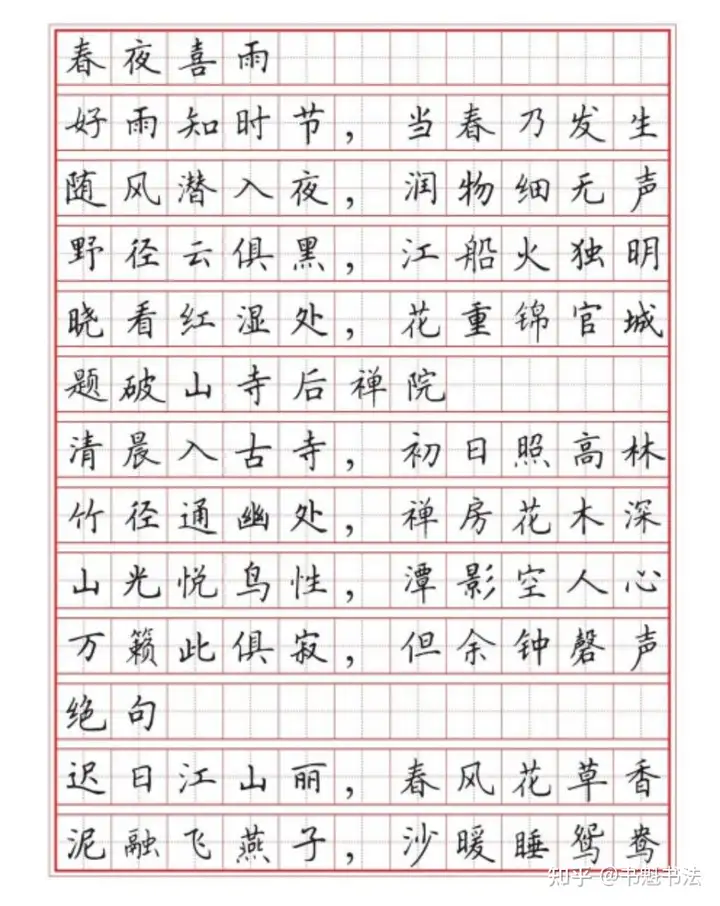 春夜喜雨
好雨知时节，当春乃发生
随风潜入夜，润物细无声
野径云俱黑，江船火独明
晓看红湿处，花重锦官城
题破山寺后禅院
清晨入古寺，初日照高林
竹径通幽处，禅房花木深
山光悦鸟性，潭影空人心
万籁此俱寂，但余钟磬声
绝句
迟日江山丽，春风花草香
泥融飞燕子，沙暖睡鸳鸯
知乎 @书魁书法